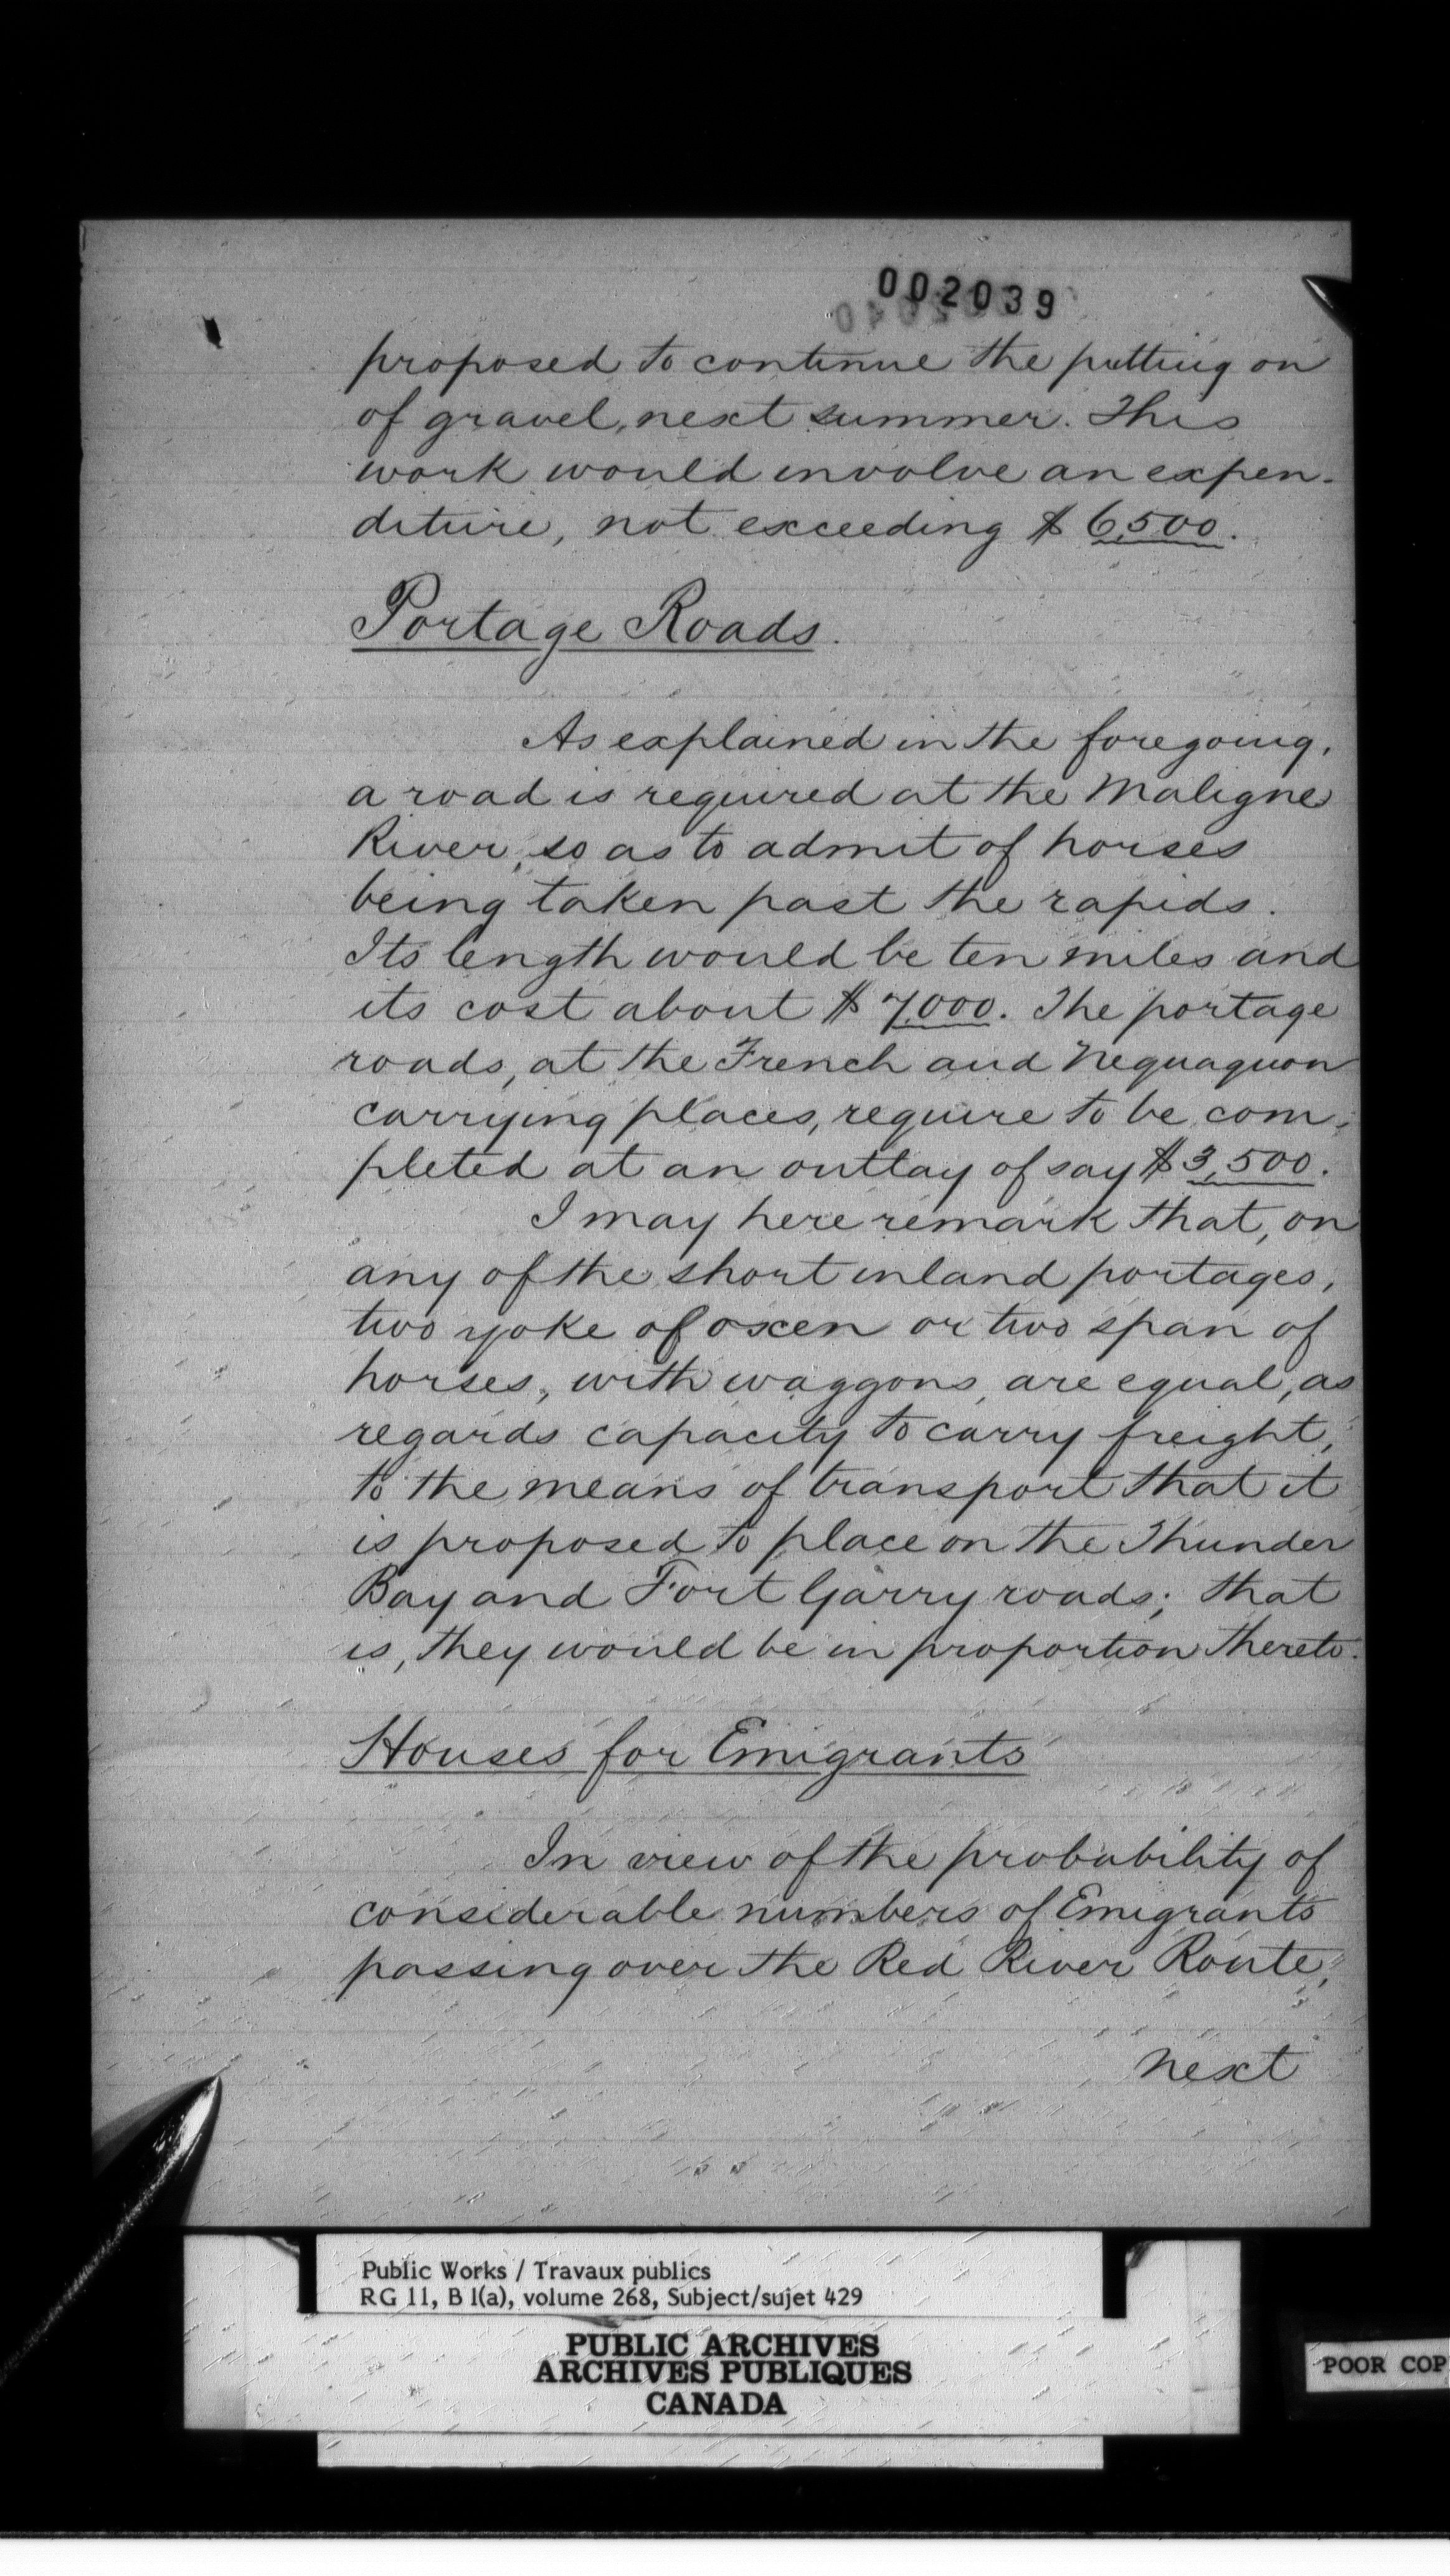 002039
proposed to continue the putting on
of gravel, next summer. This
work would involve an expen-
diture, not exceeding $6,500.
Portage Roads.
As explained in the foregoing,
a road is required at the Maligne
River, so as to admit of horses
being taken past the rapids.
Its length would be ten miles and
its cost about $7,000. The portage
roads, at the French and Nequaquon
carrying places, require to be com-
pleted at an outlay of say $3,500.
I may here remark that, on
any of the short inland portages,
two yoke of oxen or two span of
horses, with waggons, are equal, as
regards capacity to carry freight,
to the means of transport that it
is proposed to place on the Thunder
Bay and Fort Garry roads; that
is, they would be in proportion thereto.
Houses for Emigrants
In view of the probability of
considerable numbers of Emigrants
passing over the Red River Route,
next
Public Works / Travaux publics
RG 11, B 1(a), volume 268, Subject/sujet 429
PUBLIC ARCHIVES
ARCHIVES PUBLIQUES
CANADA
POOR COP